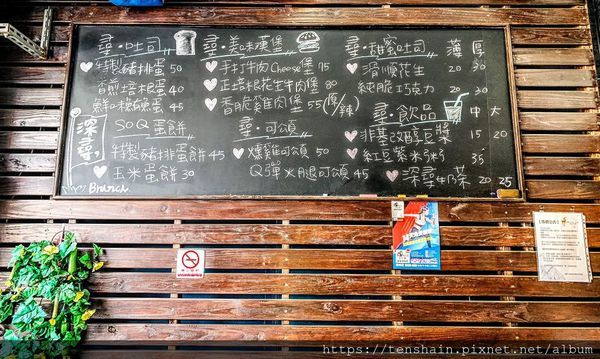 尋·吐司
特製豬排蛋 50
香煎培根蛋 40
鮮口鮪魚蛋 45
SOQ蛋餅
特製豬排蛋餅 45
玉米蛋餅 30
深尋,
Brunch
尋·美味漢堡
手打牛肉Cheese堡 95
正培根花生牛肉堡 80
香脆雞肉堡 55(厚/辣)
尋·可頌
燻雞可頌 50
Q彈火腿可頌 45
尋·甜蜜吐司 薄 厚
滑順花生 20 30
純脆巧克力 20 30
尋·飲品 中 大
非基改醇豆漿 15 20
紅豆紫米粥 35
深尋奶茶 20 25
https://tenshain.pixnet.net/album